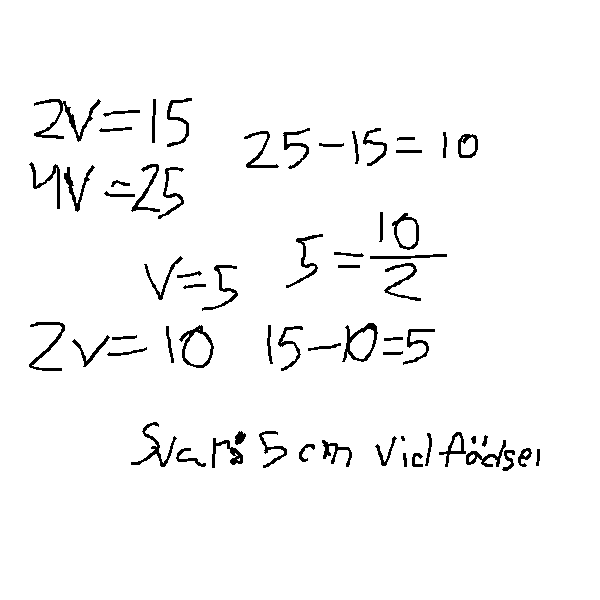 2v=15
25-15=10
4v=25
v=5
5=10/2
2v=10
15-10=5
Svar: 5 cm vid födsel